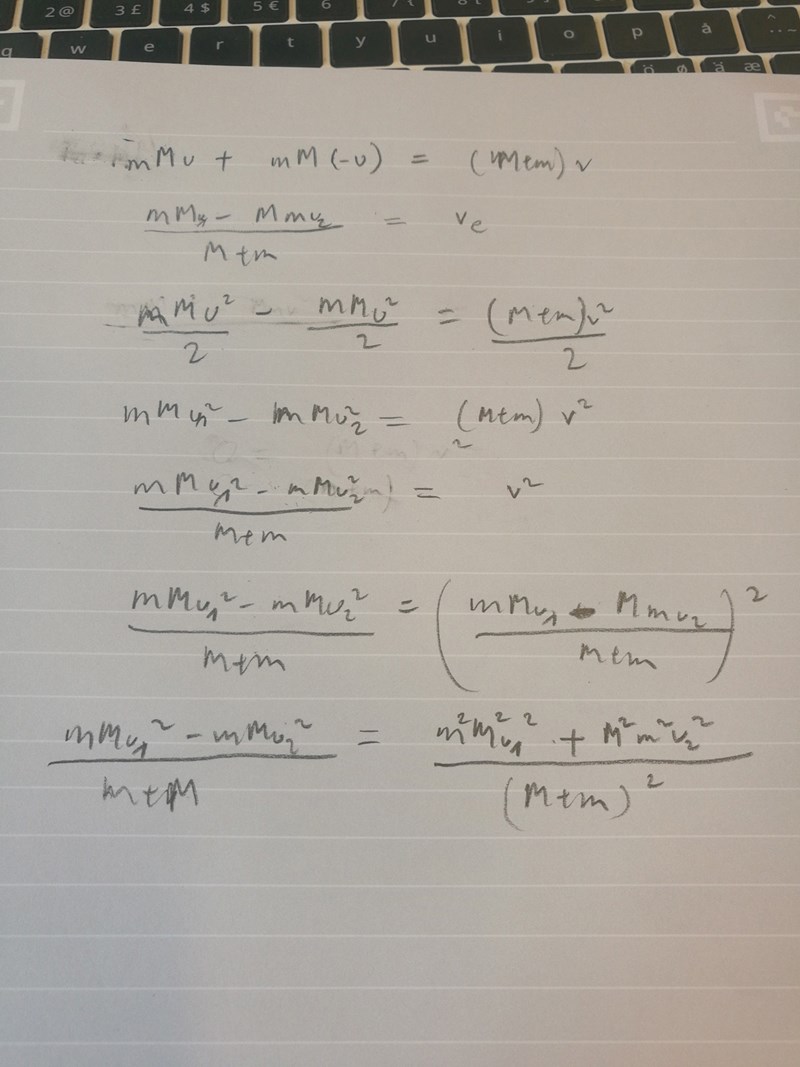 2@ 3£ 4$ 5€ 6 7
q w e r t y u i o p å
ö ø ä æ
mMu + mM(-u) = (M+m)v
(mMu₁ - Mmu₂)/(M+m) = vₑ
mMu²/2 - mMu²/2 = (M+m)v²/2
mMu₁² - mMu₂² = (M+m) v²
(mMu₁² - mMu₂²)/(M+m) = v²
(mMu₁² - mMu₂²)/(M+m) = ((mMu₁ - Mmu₂)/(M+m))²
(mMu₁² - mMu₂²)/(m+M) = (m²M²u₁² + M²m²u₂²)/(M+m)²